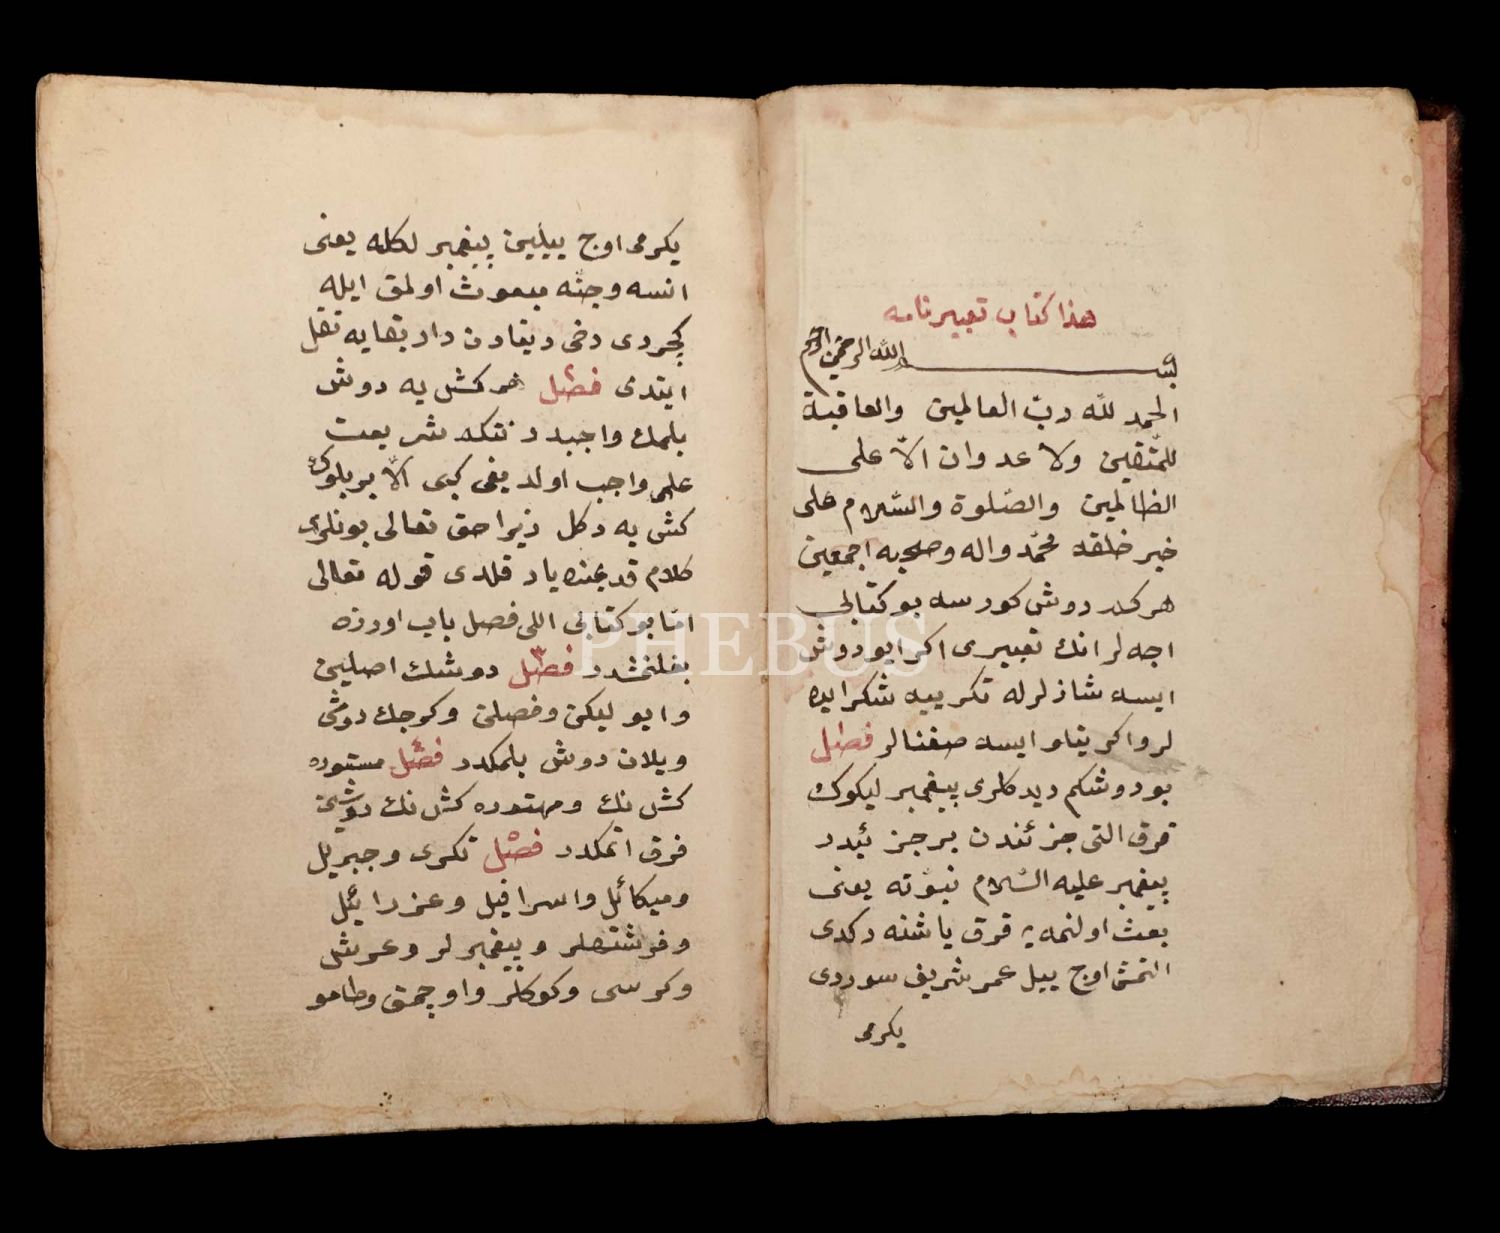 هذا كتاب تعبيرنامه
بسم الله الرحمن الرحيم
الحمد لله رب العالمين والعاقبة
للمتقين ولا عدوان الّا على
الظالمين والصّلوة والسّلام على
خير خلقه محمّد واله وصحبه اجمعين
هركه دوش كورسه بو كتابى
اجه لر انك تعبيرى اكر ايو دوش
ايسه شاذ لرله تكرييه شكر ايده
لر واكر يتلو ايسه صغنالر فصل
بو دوشكم ديدكلرى پيغمبر ليكوك
قرق التى جزئندن بر جزئيدر
پيغمبر عليه السّلام نبوّته يعنى
بعث اولنمه يه قرق ياشنه دكدى
التمش اوج ييل عمر شريف سوردى
يكرمى
يكرمى اوج ييليىن پيغمبر لكله يعنى
انسه وجنّه مبعوث اولمق ايله
كچردى دخى دنيادن دار بقايه نقل
ايتدى فصل ٢ هر كشى يه دوش
بلمك واجبدر نتكه شريعت
علمى واجب اولديغى كبى الّا بر بلوك
كشى يه دكل زيرا حق تعالى بونلرى
كلام قديمنده ياد قلدى قوله تعالى
امّا بو كتابى اللى فصل باب اوزره
بغلنمشدر فصل ٣ دوشك اصليىن
وايو ليكىن وفصلىن وكرجك دوشى
ويلان دوش بلمكدر فصل ٤ مستوره
كشى نك ومهتوره كشى نك دوشىن
فرق اتمكدر فصل ٥ تكرى وجبريل
وميكائل واسرافيل وعزرائل
وفرشتهلر وپيغمبر لر وعرش
وكرسى وكوكلر واوچمق وطامو
PHEBUS